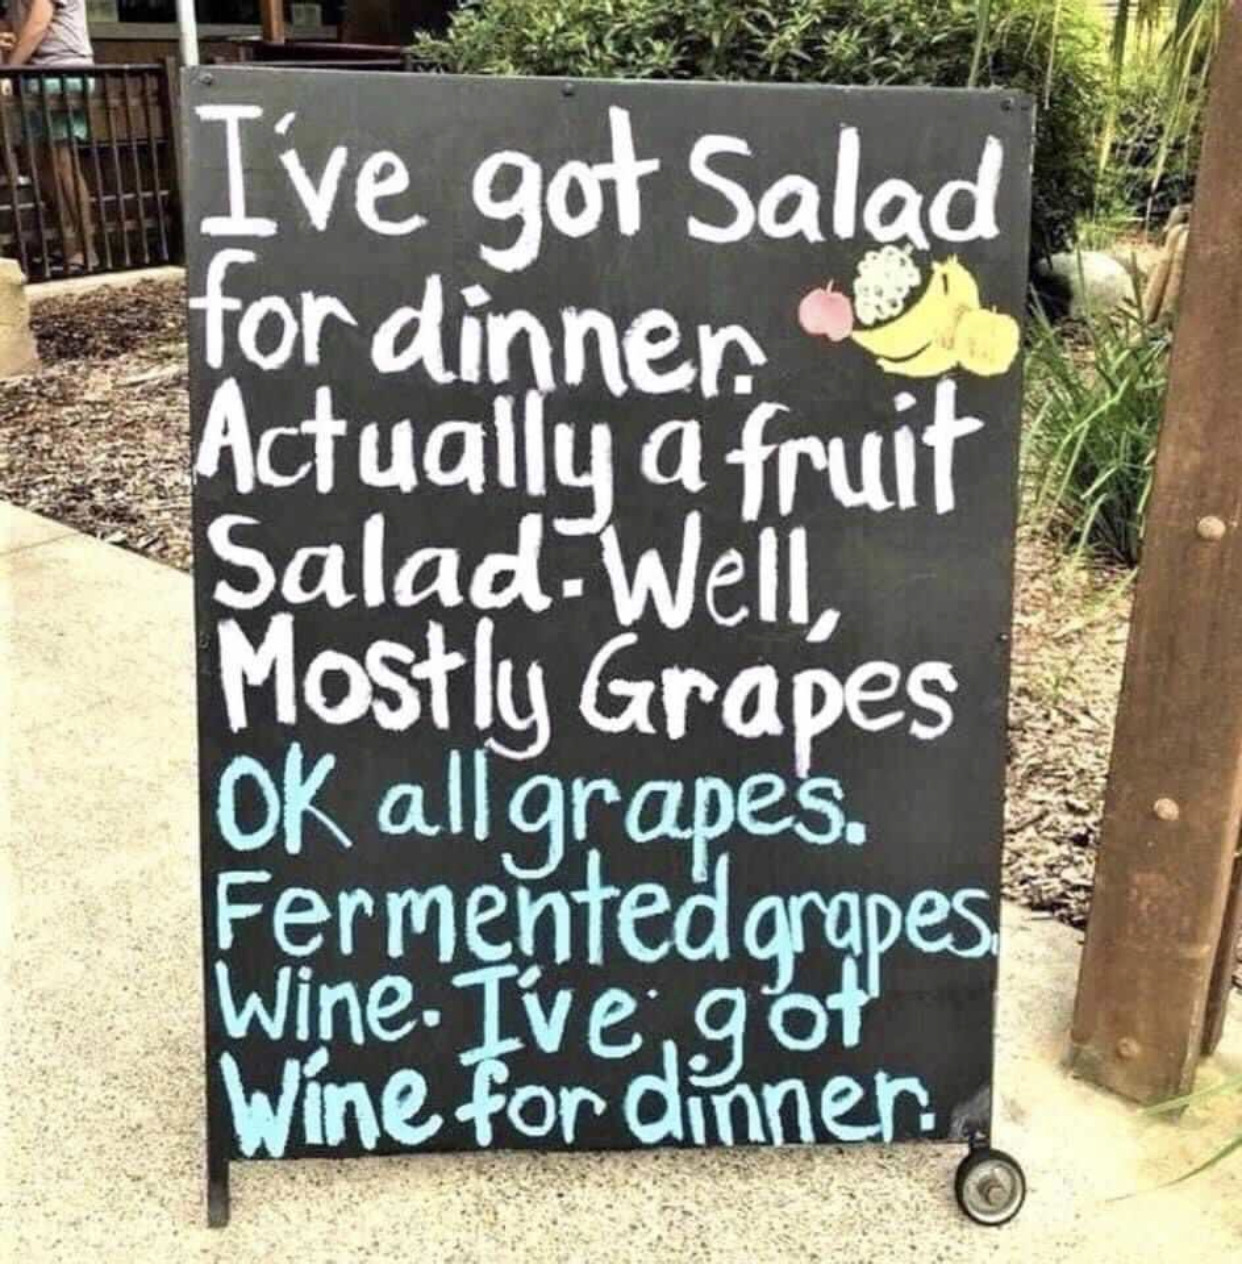 I've got Salad
for dinner.
Actually a fruit
Salad. Well,
Mostly Grapes
OK all grapes.
Fermented grapes.
Wine. I've got
Wine for dinner.